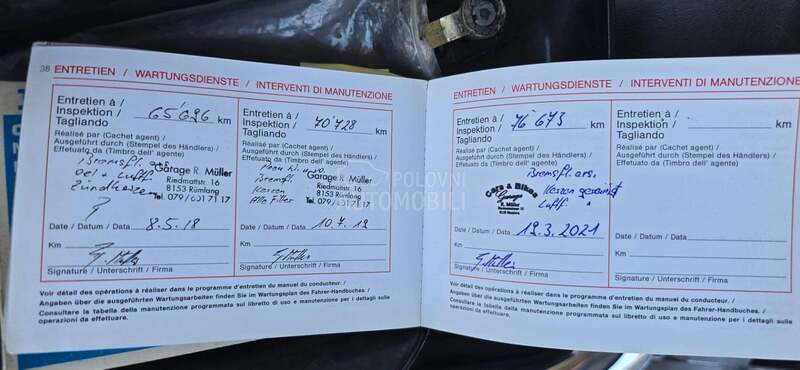 38 ENTRETIEN / WARTUNGSDIENSTE / INTERVENTI DI MANUTENZIONE
Entretien à /
Inspektion /
Tagliando
65'626 km
Réalisé par (Cachet agent) /
Ausgeführt durch (Stempel des Händlers) /
Effetuato da (Timbro dell' agente)
Bremsfl.
Oel + Luftf.
Zündkerzen
Garage R. Müller
Riedmattstr. 16
8153 Rümlang
Tel. 079/631 71 17
Date / Datum / Data 8.5.18
Km
Signature / Unterschrift / Firma
Entretien à /
Inspektion /
Tagliando
70'728 km
Réalisé par (Cachet agent) /
Ausgeführt durch (Stempel des Händlers) /
Effetuato da (Timbro dell' agente)
Bremsfl.
Alle Filter
Garage R. Müller
Riedmattstr. 16
8153 Rümlang
Tel. 079/631 71 17
Date / Datum / Data 10.7.19
Km
Signature / Unterschrift / Firma
Voir détail des opérations à réaliser dans le programme d'entretien du manuel du conducteur. /
Angaben über die ausgeführten Wartungsarbeiten finden Sie im Wartungsplan des Fahrer-Handbuches. /
Consultare la tabella della manutenzione programmata sul libretto di uso e manutenzione per i dettagli sulle
operazioni da effettuare.
ENTRETIEN / WARTUNGSDIENSTE / INTERVENTI DI MANUTENZIONE
Entretien à /
Inspektion /
Tagliando
76'673 km
Réalisé par (Cachet agent) /
Ausgeführt durch (Stempel des Händlers) /
Effetuato da (Timbro dell' agente)
Bremsfl. ers.
Luftf.
Cars & Bikes
Garage
R. Müller
Date / Datum / Data 19.3.2021
Km
Signature / Unterschrift / Firma
Entretien à /
Inspektion /
Tagliando
km
Réalisé par (Cachet agent) /
Ausgeführt durch (Stempel des Händlers) /
Effetuato da (Timbro dell' agente)
Date / Datum / Data
Km
Signature / Unterschrift / Firma
Voir détail des opérations à réaliser dans le programme d'entretien du manuel du conducteur. /
Angaben über die ausgeführten Wartungsarbeiten finden Sie im Wartungsplan des Fahrer-Handbuches. /
Consultare la tabella della manutenzione programmata sul libretto di uso e manutenzione per i dettagli sulle
operazioni da effettuare.
POLOVNI
AUTOMOBILI